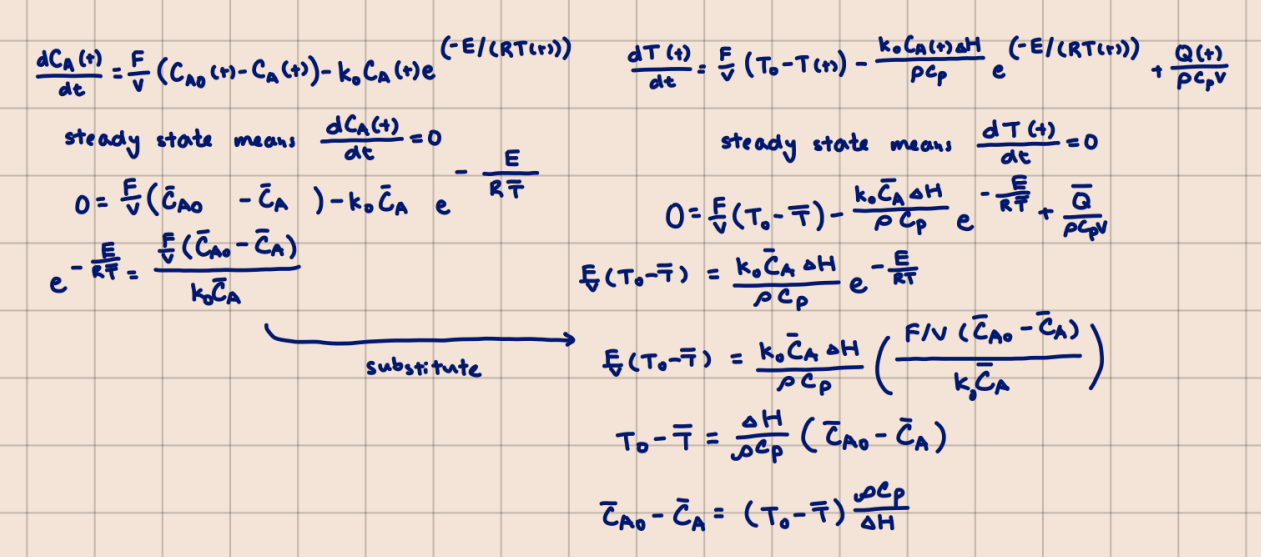 dC_A(t)/dt = F/V (C_A0(t) - C_A(t)) - k₀C_A(t)e^(-E/(RT(t)))
steady state means dC_A(t)/dt = 0
0 = F/V (C̄_A0 - C̄_A) - k₀C̄_A e^(-E/(RT̄))
e^(-E/(RT̄)) = (F/V (C̄_A0 - C̄_A))/(k₀C̄_A)
substitute
dT(t)/dt = F/V (T₀ - T(t)) - (k₀C_A(t)ΔH)/(ρC_p) e^(-E/(RT(t))) + Q(t)/(ρC_pV)
steady state means dT(t)/dt = 0
0 = F/V (T₀ - T̄) - (k₀C̄_AΔH)/(ρC_p) e^(-E/(RT̄)) + Q̄/(ρC_pV)
F/V (T₀ - T̄) = (k₀C̄_AΔH)/(ρC_p) e^(-E/(RT))
F/V (T₀ - T̄) = (k₀C̄_AΔH)/(ρC_p) ((F/V (C̄_A0 - C̄_A))/(k₀C̄_A))
T₀ - T̄ = ΔH/(ρC_p) (C̄_A0 - C̄_A)
C̄_A0 - C̄_A = (T₀ - T̄) ρC_p/ΔH